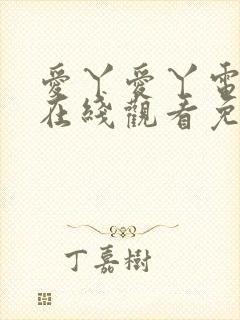 愛丫愛丫電
在綫觀看免
丁嘉樹